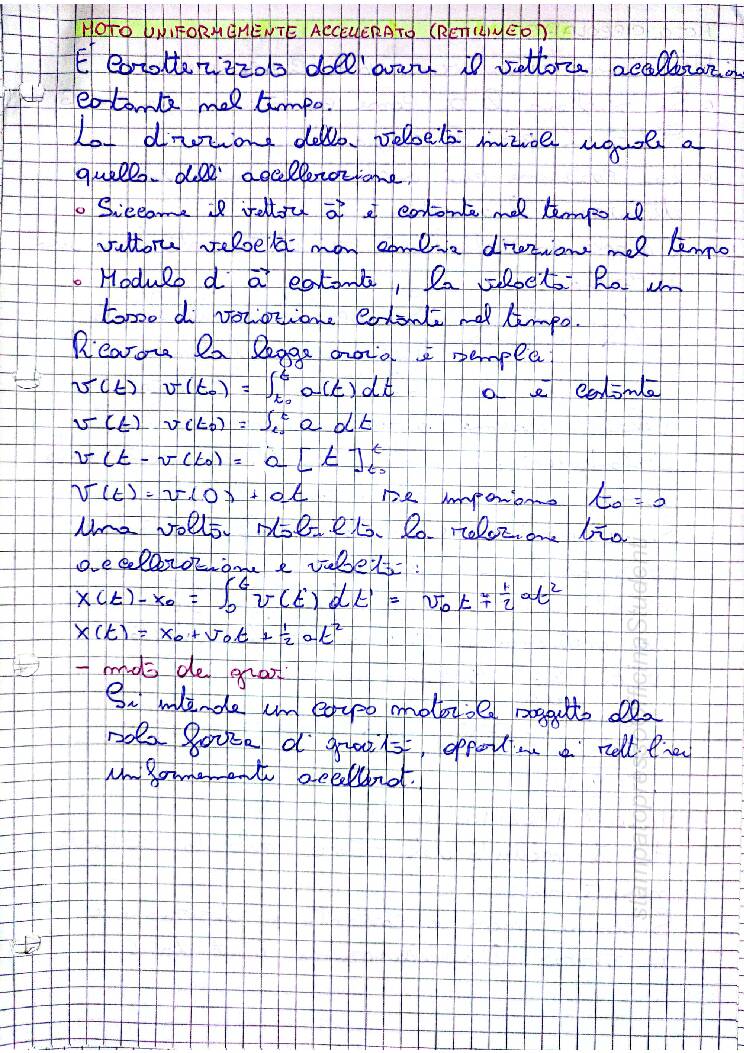 MOTO UNIFORMEMENTE ACCELLERATO (RETTILINEO)
É caratterizzato dall'avere il vettore accellerazion
costante nel tempo.
La direzione della velocità iniziale uguale a
quella dell' accellerazione.
• Siccome il vettore a⃗ è costante nel tempo il
vettore velocità non cambia direzione nel tempo
• Modulo di a⃗ costante, la velocità ha un
tasso di variazione costante nel tempo.
Ricavare la legge oraria è semplice:
v(t) v(t₀) = ∫ₜ₀ᵗ a(t) dt a è costante
v(t) v(t₀) = ∫ₜ₀ᵗ a dt
v(t - v(t₀) = a [t]ₜ₀ᵗ
v(t) = v(0) + at se imponiamo t₀ = 0
Una volta stabilita la relazione tra
accellerazione e velocità:
x(t) - x₀ = ∫₀ᵗ v(t') dt' = v₀t + ½ at²
x(t) = x₀ + v₀t + ½ at²
- moto dei gravi
Si intende un corpo materiale soggetto alla
sola forza di gravità, appartiene ai rettilinei
uniformemente accellerat.
stampatopress Officina Studenti